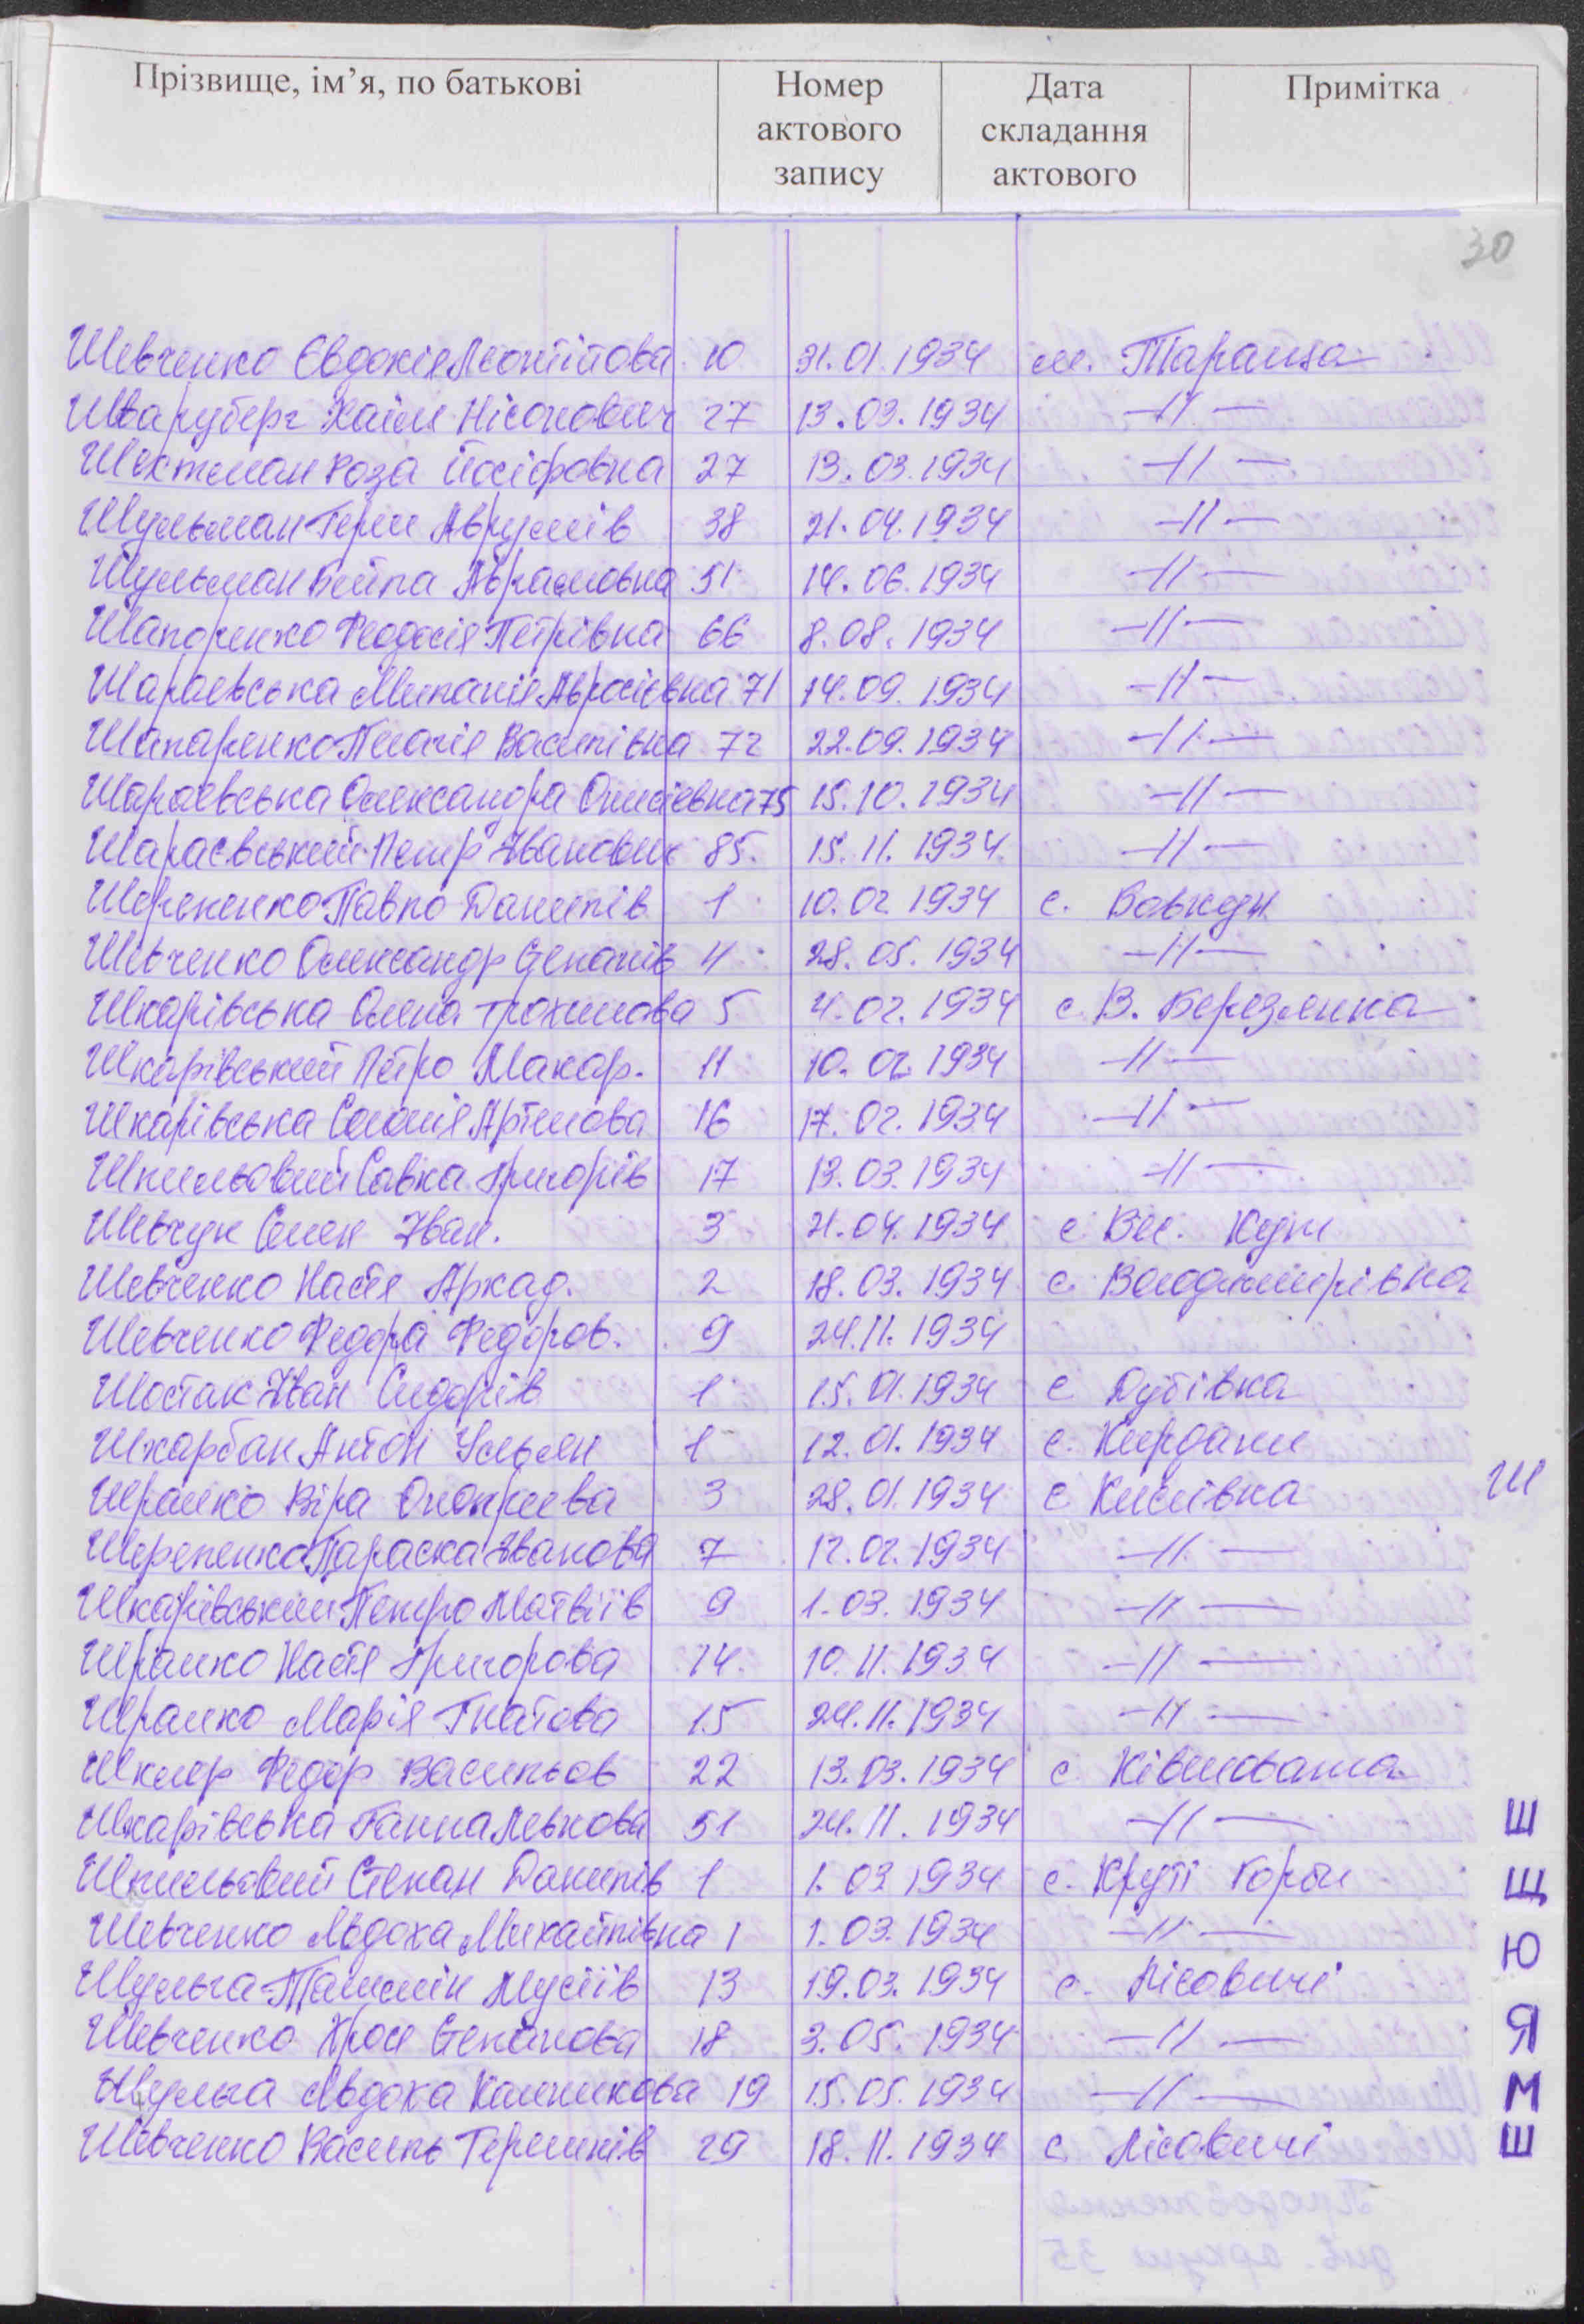 Прізвище, ім’я, по батькові Номер актового запису Дата складання актового Примітка
30
Шевченко Євдокія Леонтійова 10 31.01.1934 м. Тараща
Шварцберг Хаїм Нісонович 27 13.03.1934 -//-
Шехтман Роза Йосіфовна 27 13.03.1934 -//-
Шульман Герш Аврумів 38 21.04.1934 -//-
Шульман Бейла Абрамовна 51 14.06.1934 -//-
Шапоренко Феодосія Петрівна 66 8.08.1934 -//-
Шараєвська Миланія Авросієвна 71 14.09.1934 -//-
Шапаренко Пелагія Василівна 72 22.09.1934 -//-
Шараєвська Олександра Онисієвна 75 15.10.1934 -//-
Шараєвський Петр Іванович 85. 15.11.1934 -//-
Шерепенко Павло Данилів 1 10.02.1934 с. Вовкун
Шевченко Олександр Степанів 4 28.05.1934 -//-
Шкарівська Олена Трохимова 5 4.02.1934 с. В. Березянка
Шкарівський Петро Макар. 11 10.02.1934 -//-
Шкарівська Соломія Артемова 16 17.02.1934 -//-
Шпильовий Савка Григорів 17 13.03.1934 -//-
Шевчук Семен Іван. 3 21.04.1934 с. Вел.
Шевченко Настя Аркад. 2 18.03.1934 с. Володимирівка
Шевченко Федора Федоров. 9 24.11.1934
Шостак Іван Сидорів 1 15.01.1934 с. Дубівка
Шкарбан Антон Ульян 1 12.01.1934 с. Кирдани
Шрамко Віра Онопрієва 3 28.01.1934 с. Кислівка
Ш
Шерепенко Параска Іванова 7 12.02.1934 -//-
Шкарівський Петро Матвіїв 9 1.03.1934 -//-
Шрамко Настя Григорова 14 10.11.1934 -//-
Шрамко Марія Гнатова 15 24.11.1934 -//-
Шкляр Федір Васильов 22 13.03.1934 с. Ківшовата
Шкарівська Ганна Левкова 51 24.11.1934 -//-
Ш
Шпильовий Степан Данилів 1 1.03.1934 с. Круті Горби
Щ
Шевченко Явдоха Михайлівна 1 1.03.1934 -//-
Ю
Шульга Мусіїв 13 19.03.1934 с. Лісовичі
Шевченко Степанова 18 3.05.1934 -//-
Я
Шульга Явдоха 19 15.05.1934 -//-
М
Шевченко Василь Терешків 29 18.11.1934 с. Лісовичі
Ш